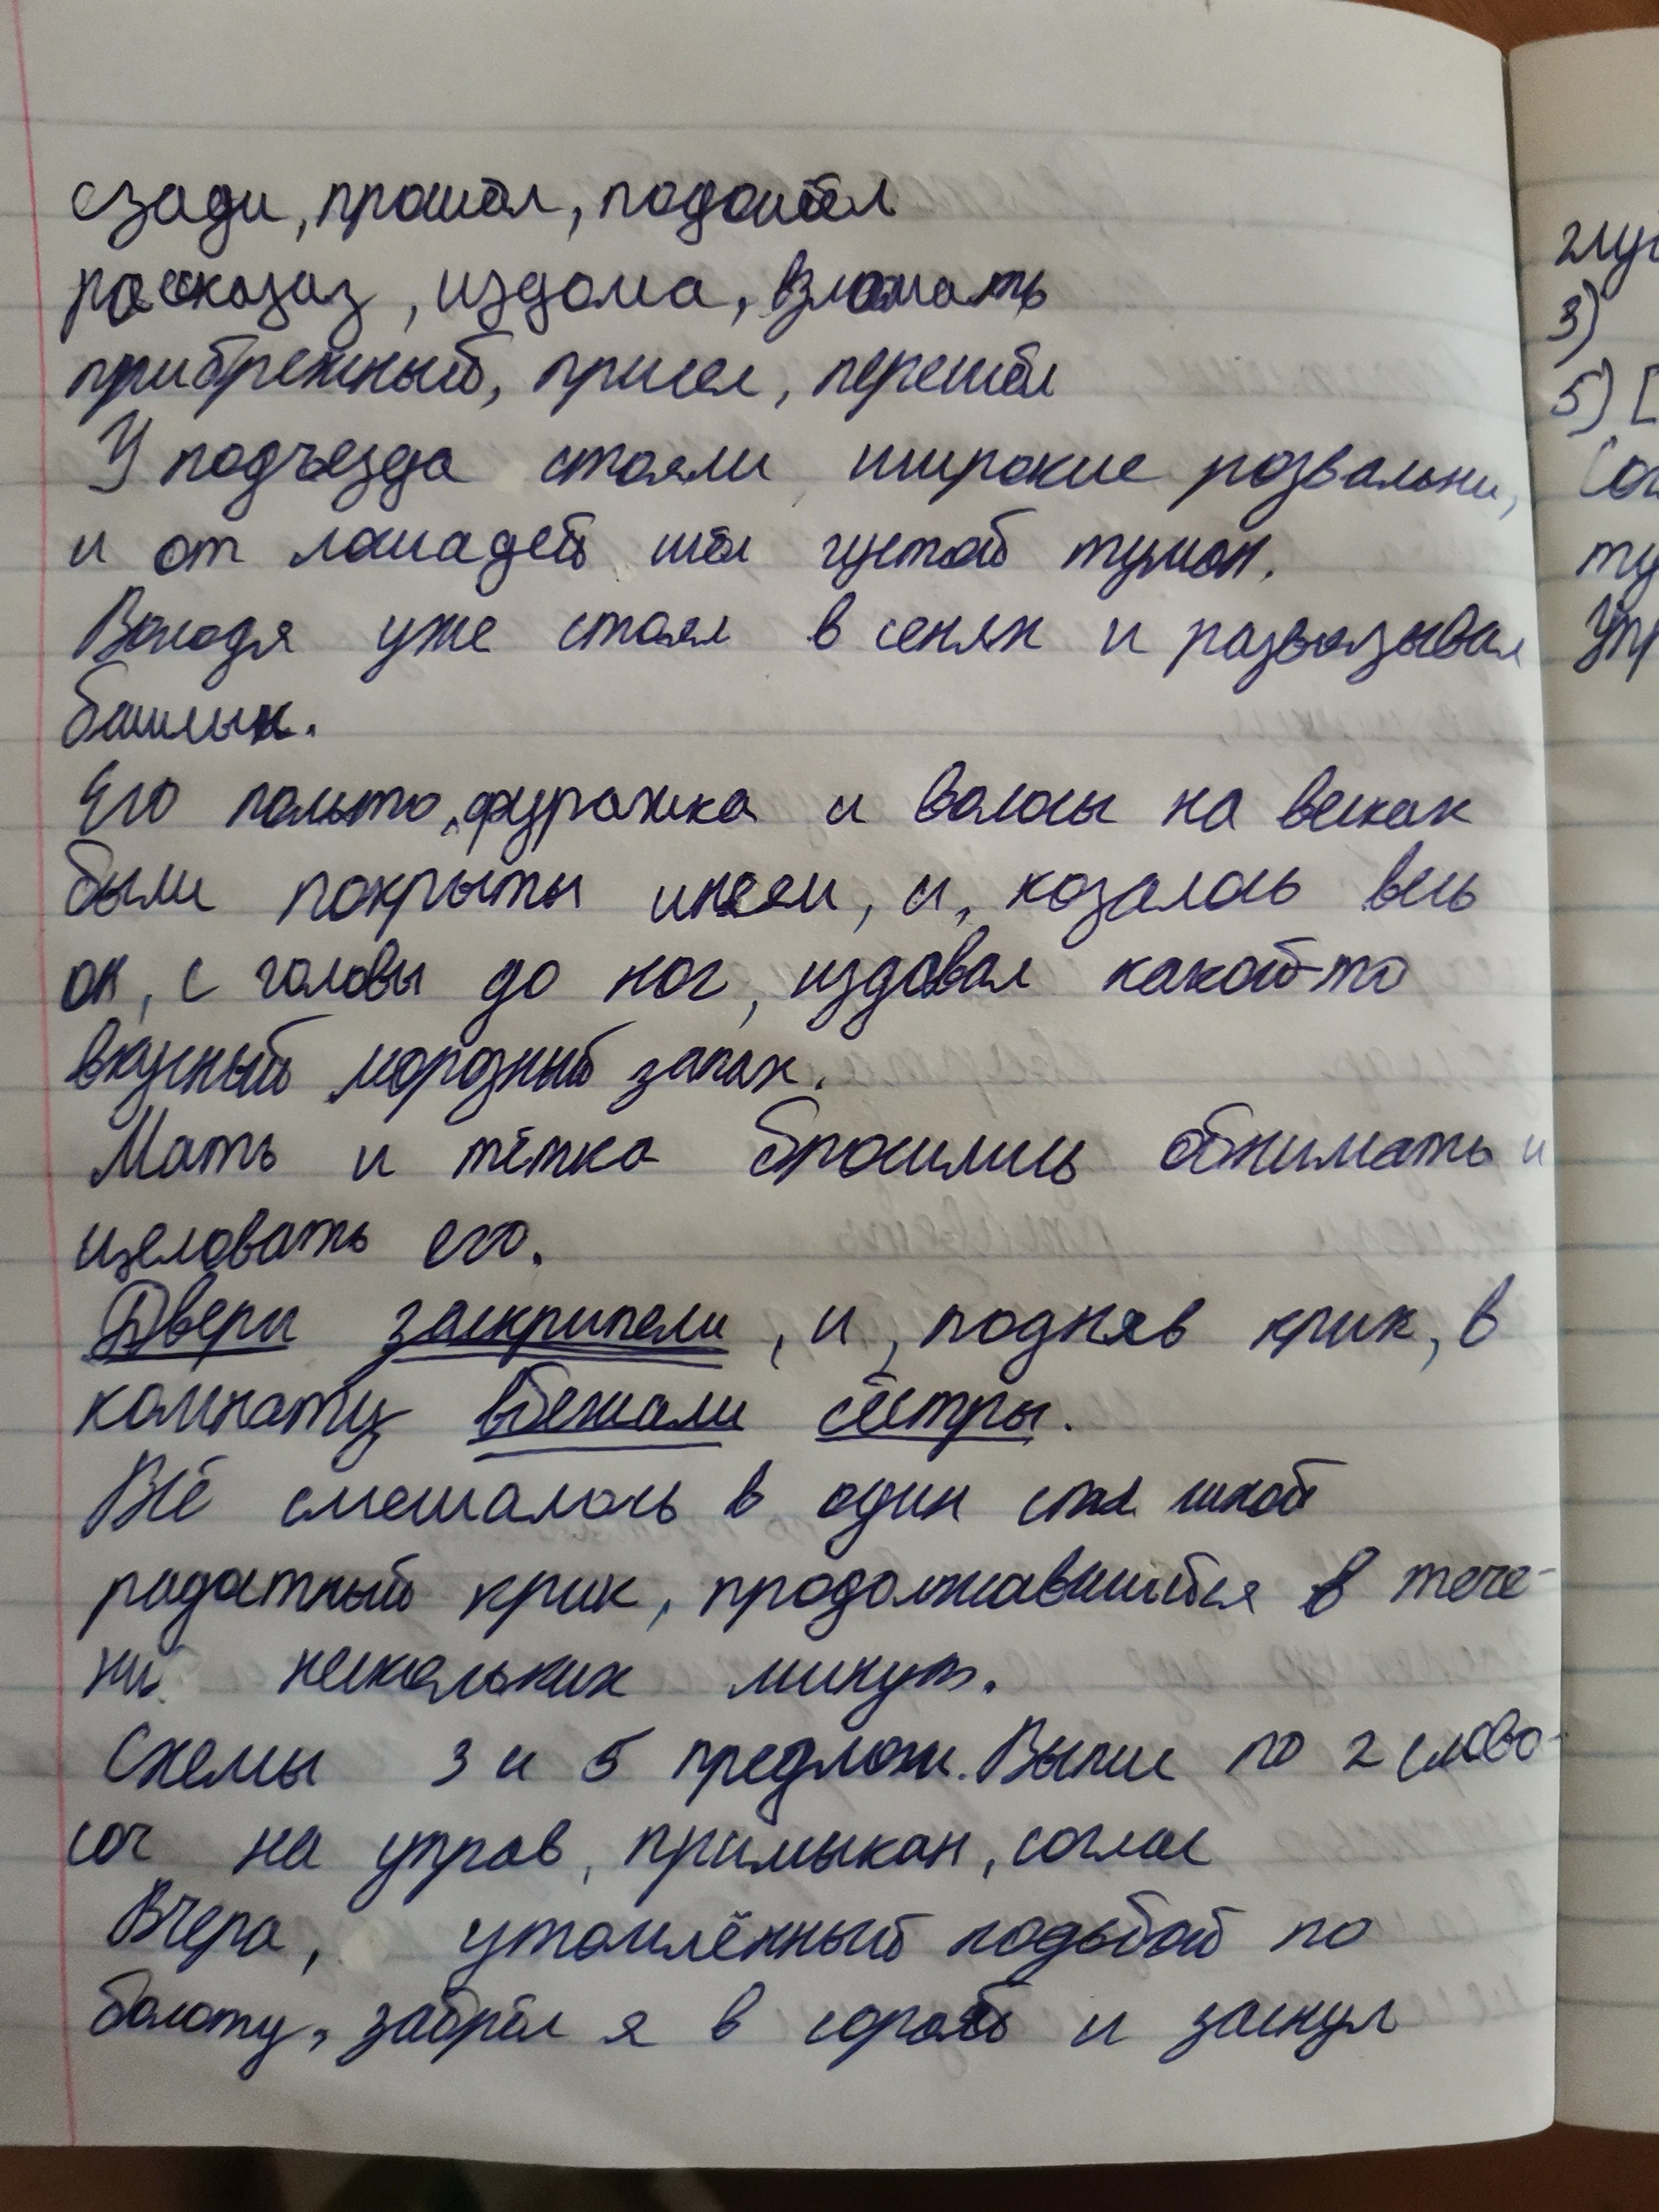 сзади, прошёл, подошёл
рассказаз, издома, взломать
прибрежный, присел, перешёл
У подъезда стояли широкие розвальни,
и от лошадей шёл густой туман.
Володя уже стоял в сенях и развязывал
башлык.
Его пальто, фуражка и волосы на висках
были покрыты инеем, и, казалось весь
он, с головы до ног, издавал какой-то
вкусный морозный запах.
Мать и тётка бросились обнимать и
целовать его.
Двери заскрипели, и, подняв крик, в
комнату вбежали сёстры.
Всё смешалось в один сплошной
радостный крик, продолжавшийся в тече-
ни нескольких минут.
Схемы 3 и 5 предлож. Выпис по 2 слово-
соч на управ, примыкан, соглас
Вчера, утомлённый ходьбой по
болоту, забрёл я в сарай и заснул
глу
3)
5) [
ту
Упр